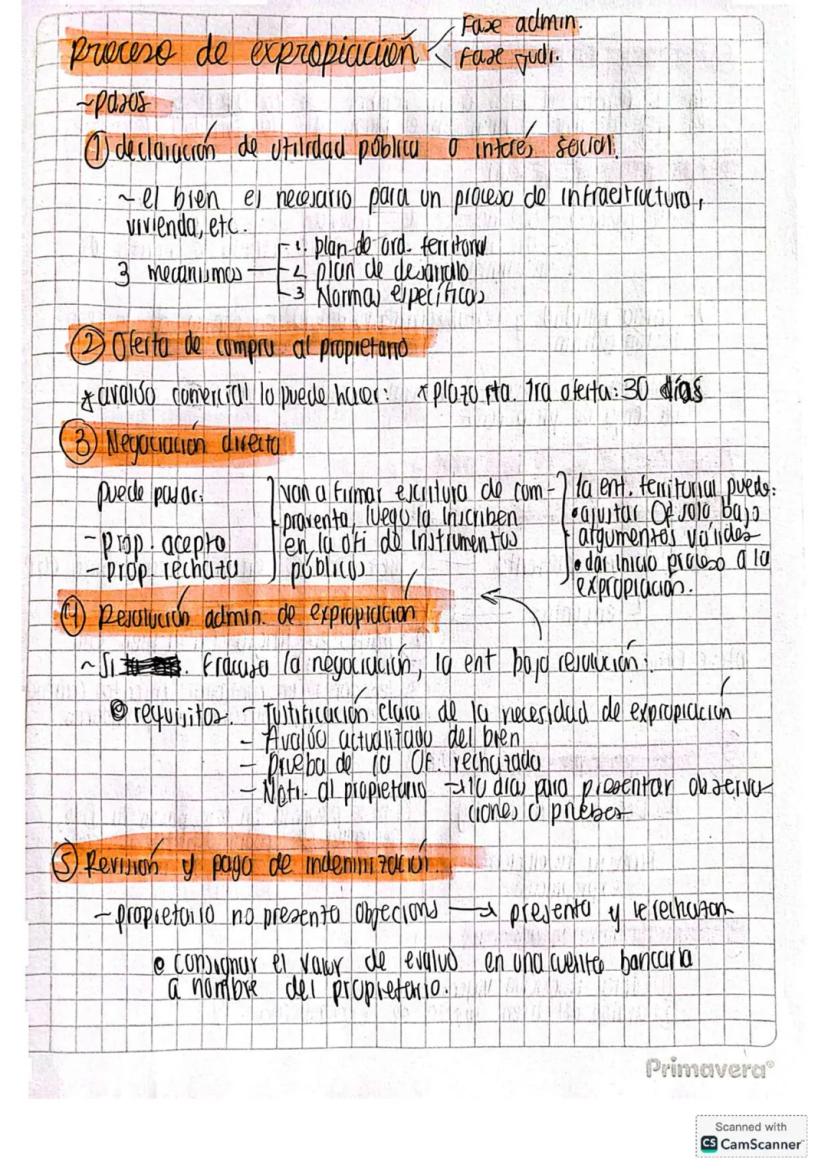 Proceso de expropiación
Fase admin.
Fase judi.
~pasos
① declaración de utilidad pública o interés social.
~ el bien es necesario para un proceso de infraestructura,
vivienda, etc.
3 mecanismos
1. plan de ord. territorial
2 plan de desarrollo
3 Normas específicas
② Oferta de compra al propietario
* avalúo comercial lo puede hacer: * plazo rta. 1ra oferta: 30 días
③ Negociación directa
puede pasar:
- prop. acepta
- prop. rechaza
van a firmar escritura de com-
praventa, luego la inscriben
en la ofi de instrumentos
públicos
la ent. territorial puede:
• ajustar OF solo bajo
argumentos válidos
• dar inicio proceso a la
expropiación.
④ Resolución admin. de expropiación
~ Si fracasa la negociación, la ent bajo resolución:
requisitos. - Justificación clara de la necesidad de expropiación
- Avalúo actualizado del bien
- Prueba de la OF. rechazada
- Noti. al propietario → 10 días para presentar observa
ciones o pruebas
⑤ Revisión y pago de indemnización.
- propietario no presenta objecions → presenta y le rechazan
• consignar el valor de evaluo en una cuenta bancaria
a nombre del propietario.
Primavera®
Scanned with
CS CamScanner